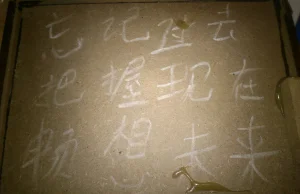 忘记过去
把握现在
畅想未来